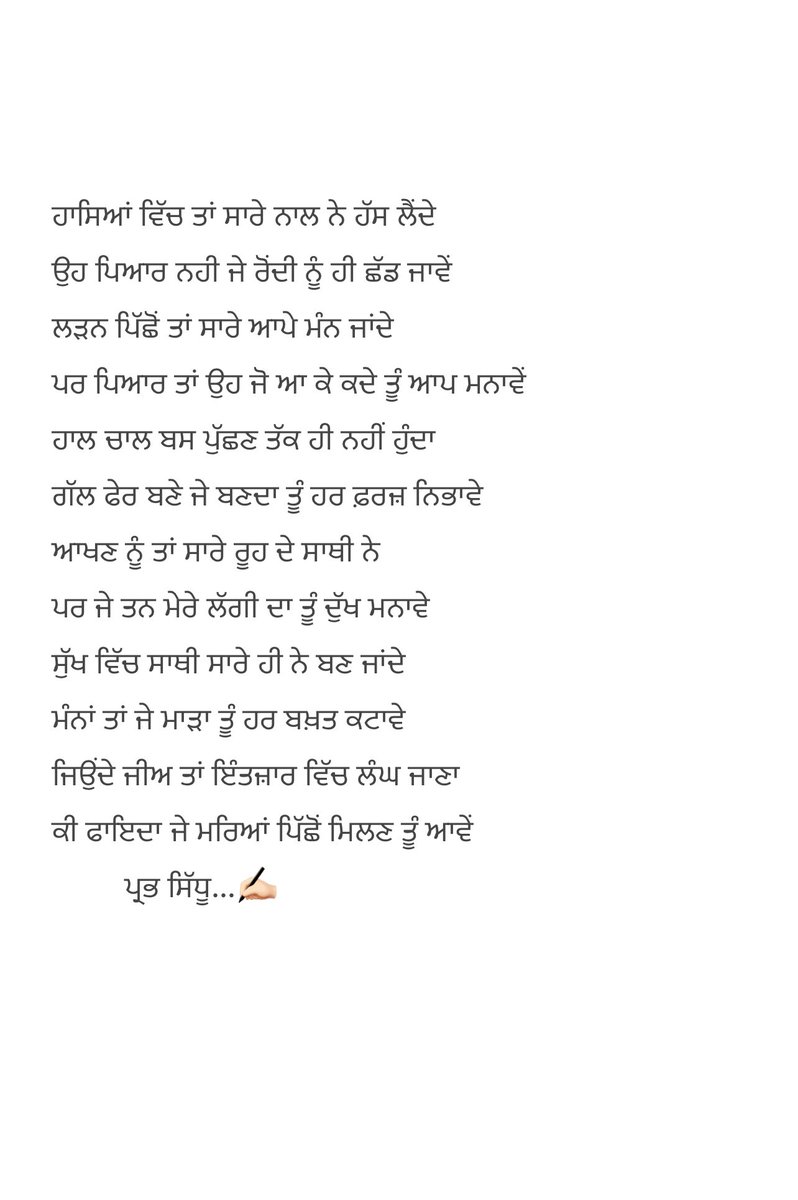 ਹਾਸਿਆਂ ਵਿੱਚ ਤਾਂ ਸਾਰੇ ਨਾਲ ਨੇ ਹੱਸ ਲੈਂਦੇ
ਉਹ ਪਿਆਰ ਨਹੀ ਜੇ ਰੋਂਦੀ ਨੂੰ ਹੀ ਛੱਡ ਜਾਵੇਂ
ਲੜਨ ਪਿੱਛੋਂ ਤਾਂ ਸਾਰੇ ਆਪੇ ਮੰਨ ਜਾਂਦੇ
ਪਰ ਪਿਆਰ ਤਾਂ ਉਹ ਜੋ ਆ ਕੇ ਕਦੇ ਤੂੰ ਆਪ ਮਨਾਵੇਂ
ਹਾਲ ਚਾਲ ਬਸ ਪੁੱਛਣ ਤੱਕ ਹੀ ਨਹੀਂ ਹੁੰਦਾ
ਗੱਲ ਫੇਰ ਬਣੇ ਜੇ ਬਣਦਾ ਤੂੰ ਹਰ ਫ਼ਰਜ਼ ਨਿਭਾਵੇ
ਆਖਣ ਨੂੰ ਤਾਂ ਸਾਰੇ ਰੂਹ ਦੇ ਸਾਥੀ ਨੇ
ਪਰ ਜੇ ਤਨ ਮੇਰੇ ਲੱਗੀ ਦਾ ਤੂੰ ਦੁੱਖ ਮਨਾਵੇ
ਸੁੱਖ ਵਿੱਚ ਸਾਥੀ ਸਾਰੇ ਹੀ ਨੇ ਬਣ ਜਾਂਦੇ
ਮੰਨਾਂ ਤਾਂ ਜੇ ਮਾੜਾ ਤੂੰ ਹਰ ਬਖ਼ਤ ਕਟਾਵੇ
ਜਿਉਂਦੇ ਜੀਅ ਤਾਂ ਇੰਤਜ਼ਾਰ ਵਿੱਚ ਲੰਘ ਜਾਣਾ
ਕੀ ਫਾਇਦਾ ਜੇ ਮਰਿਆਂ ਪਿੱਛੋਂ ਮਿਲਣ ਤੂੰ ਆਵੇਂ
ਪ੍ਰਭ ਸਿੱਧੂ...✍🏻